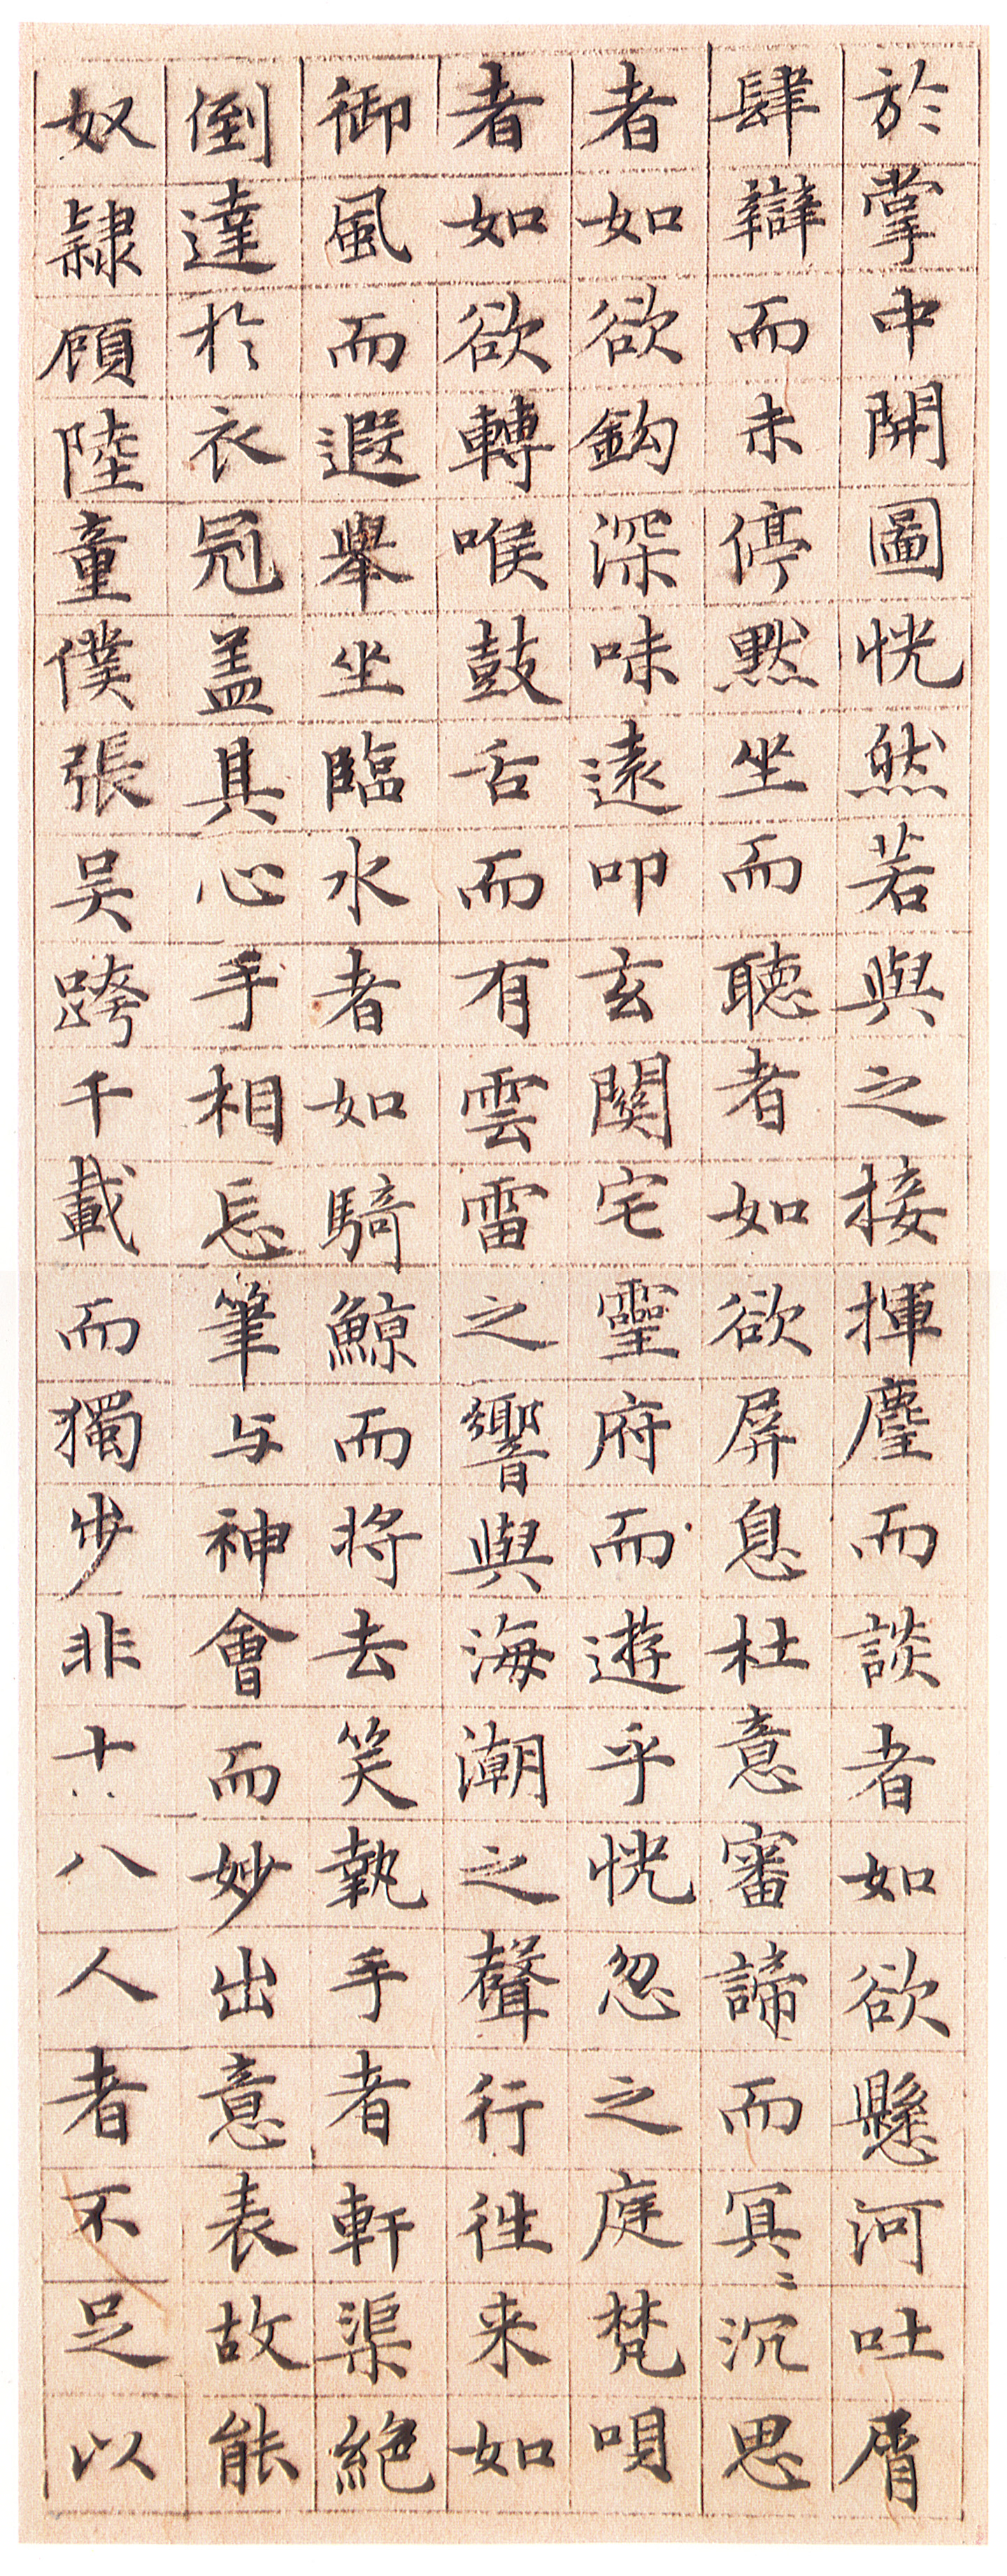 於掌中開圖恍然若與之接揮麈而談者如欲懸河吐屑
肆辯而未停默坐而聽者如欲屏息杜意審諦而冥〻沉思
者如欲鈎深味遠叩玄關宅靈府而遊乎恍忽之庭梵唄
者如欲轉喉鼓舌而有雲雷之響與海潮之聲行往来如
御風而遐舉坐臨水者如騎鯨而將去笑執手者軒渠絶
倒達於衣冠盖其心手相忘筆与神會而妙出意表故能
奴隸顧陸童僕張吴跨千載而獨步非十八人者不足以